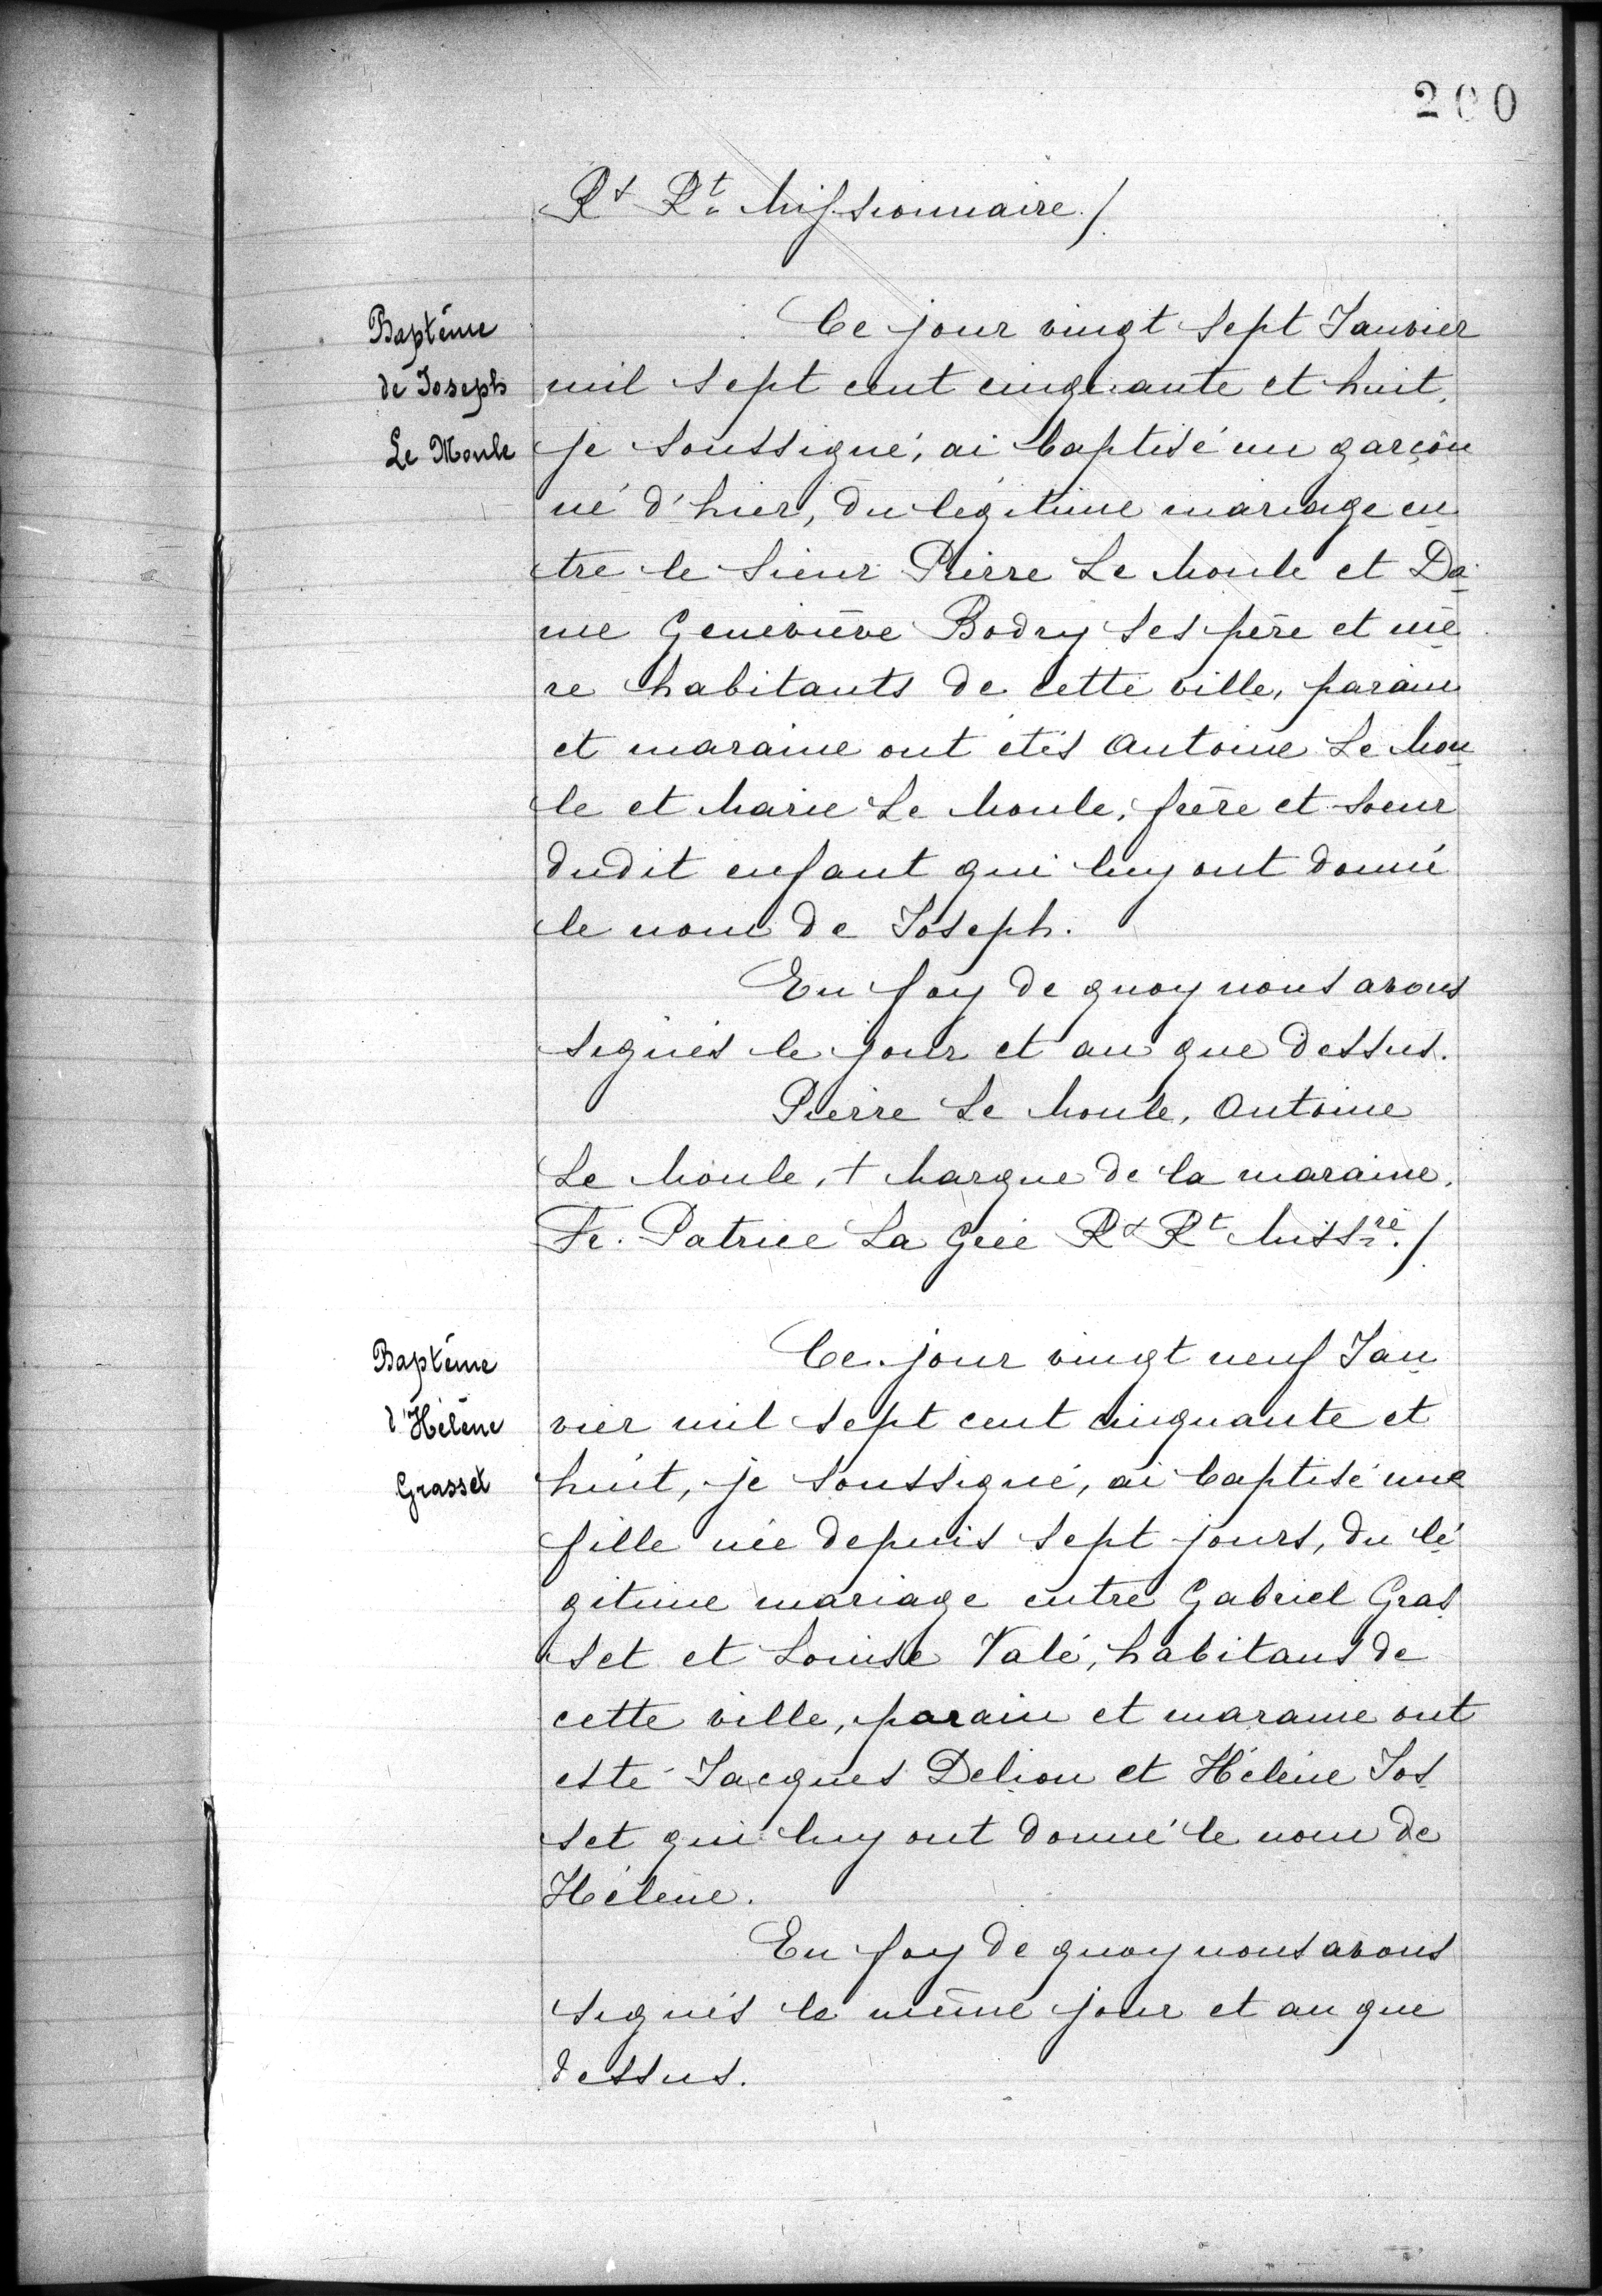 200
R^x R^t Missionnaire./.
Baptême
de Joseph
Le Moule
Ce jour vingt sept Janvier
mil sept cent cinquante et huit,
je soussigné, ai baptisé un garçon
né d'hier, du légitime mariage en
tre le Sieur Pierre Le Moule et Da
me Geneviève Bodry ses père et mè
re habitants de cette ville, parain
et maraine ont étés Antoine Le Mou
le et Marie Le Moule, frère et soeur
dudit enfant qui luy ont donné
le nom de Joseph.
En foy de quoy nous avons
signés le jour et an que dessus.
Pierre Le Moule, Antoine
Le Moule, + Marque de la maraine.
Fr. Patrice La Grée R^x R^t Miss^re./.
Baptême
d'Hélène
Grasset
Ce jour vingt neuf Jan
vier mil sept cent cinquante et
huit, je soussigné, ai baptisé une
fille née depuis sept jours, du lé
gitime mariage entre Gabriel Gras
set et Louise Valé, habitans de
cette ville, parain et maraine ont
esté Jacques Delion et Hélène Jos
set qui luy ont donné le nom de
Hélène.
En foy de quoy nous avons
signés le même jour et an que
dessus.